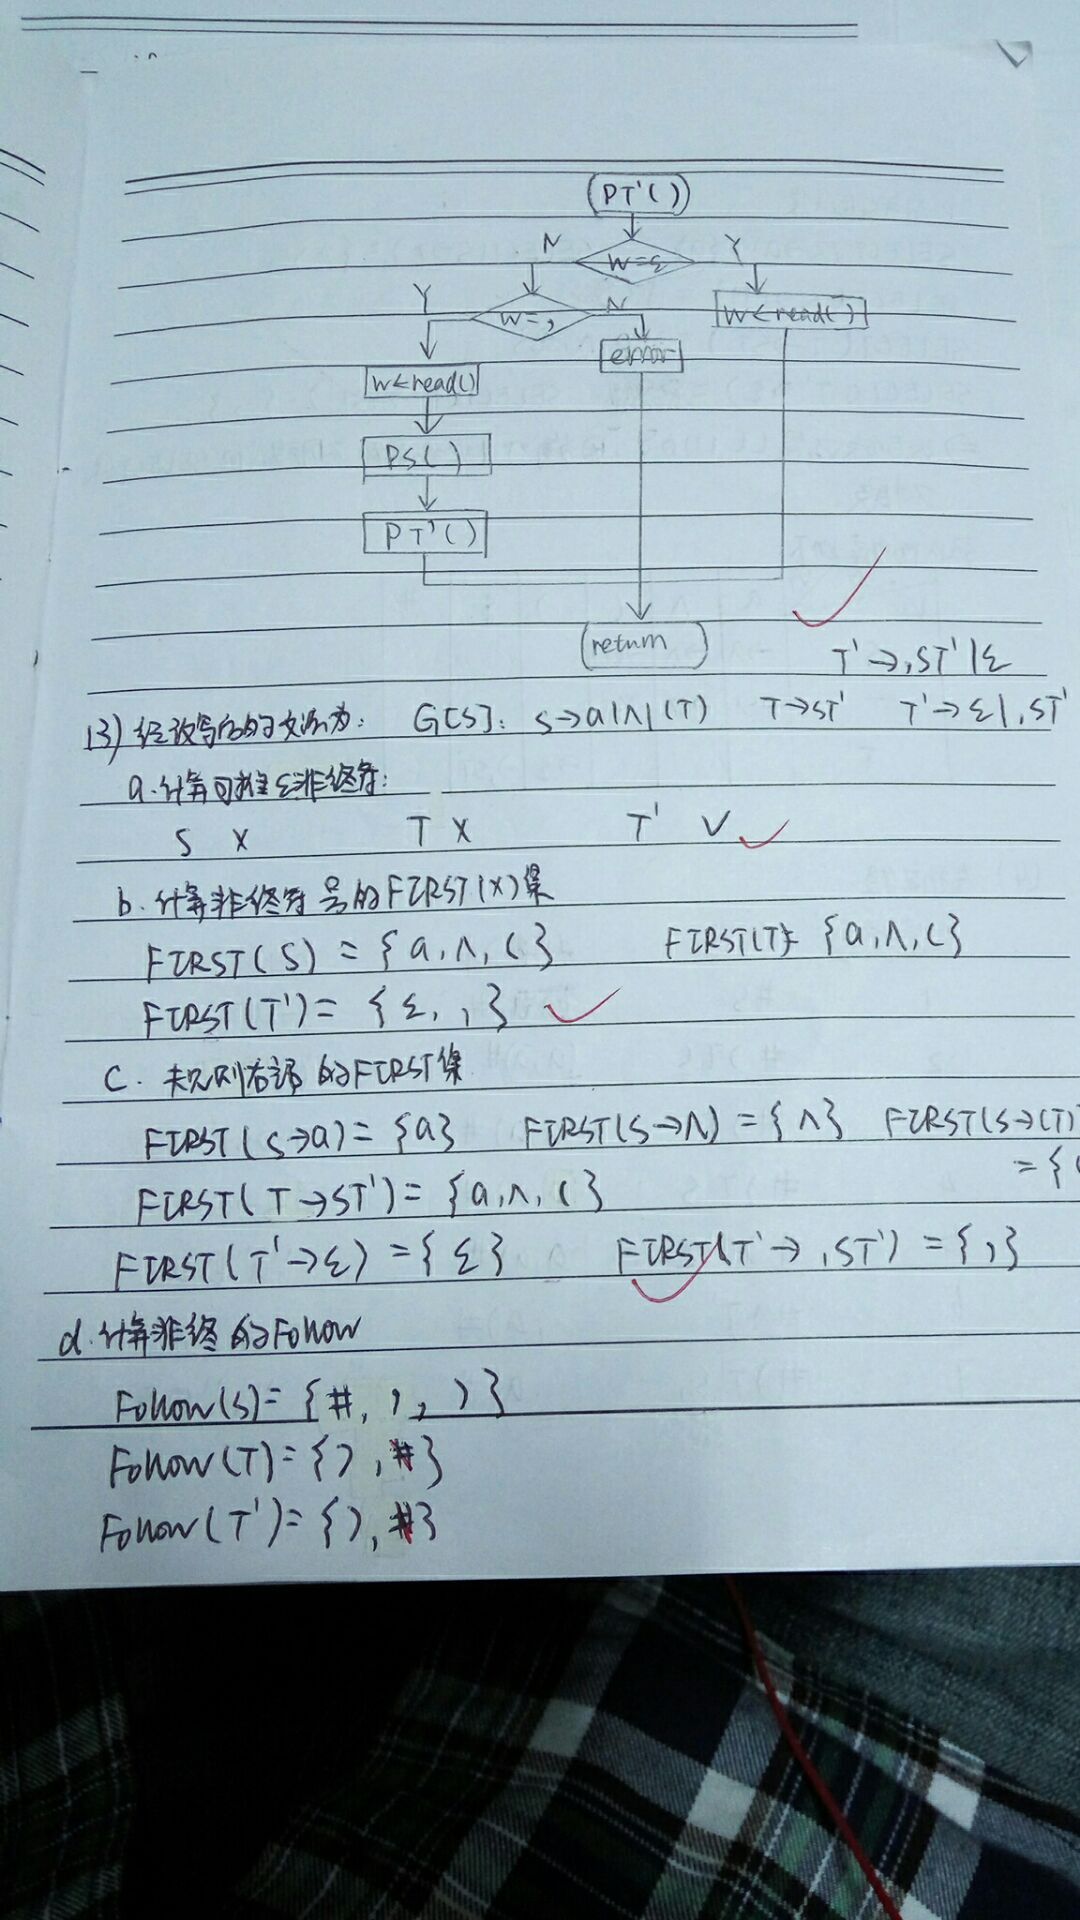 (PT'())
N W=ε Y
Y W=, N W←read()
error
W←read()
PS()
PT'()
return
T'→,ST'|ε
(3) 经改写后的文法为: G[S]: S→a|∧|(T) T→ST' T'→ε|,ST'
a.计算可推出ε非终符:
S × T × T' √
b.计算非终符号的FIRST(X)集
FIRST(S) = {a,∧,(} FIRST(T)= {a,∧,(}
FIRST(T')= {ε, ,}
C. 求规则右部的FIRST集
FIRST(S→a)={a} FIRST(S→∧)={∧} FIRST(S→(T)
={(
FIRST(T→ST')={a,∧,(}
FIRST(T'→ε)={ε} FIRST(T'→,ST')={,}
d.计算非终的Follow
Follow(S)={#, , , )}
Follow(T)={),#}
Follow(T')={),#}